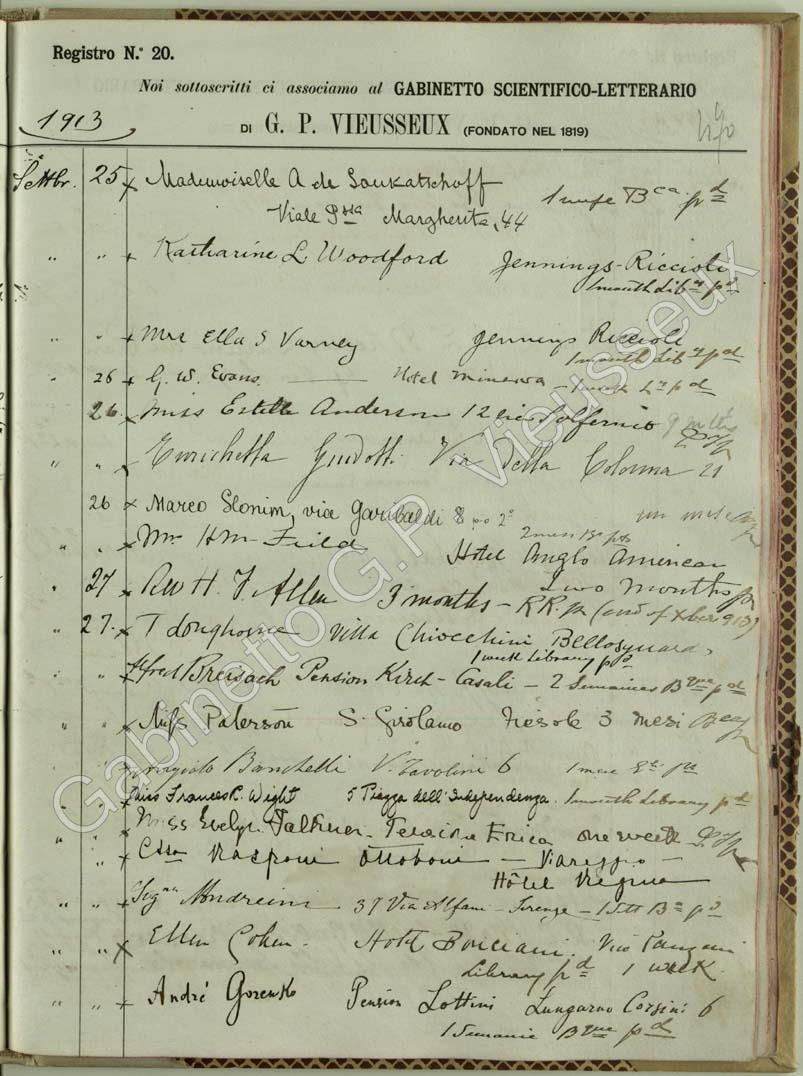 Registro N.° 20.
Noi sottoscritti ci associamo al GABINETTO SCIENTIFICO-LETTERARIO
DI G. P. VIEUSSEUX (FONDATO NEL 1819)
1913
Settbr. 25 Mademoiselle A de Soukatschoff
Viale Pssa Margherita, 44
1 mese Bca pd
" " Katharine L Woodford Jennings-Riccioli
1 month Liby pd
" " Mrs Ella S Varney Jennings Riccioli
1 month Liby pd
" 26 G. W. Evans Hotel Minerva - 1 week Ly pd
26 Miss Estelle Anderson 12 via Solferino
" " Enrichetta Guidotti Via Della Colonna 21
26 Marco Slonim, via Garibaldi 8 po 2° un mese
" " Mr HM Field Hotel Anglo American
Two Months
" 27 Rev H. J. Allen 3 months - RR
" 27. T Villa Chiocchini Bellosguardo
1 week Library pd
Alfred Breisach Pension Kirch-Casali - 2 Semaines Bque pd
" " Miss Paterson S. Girolamo Fiesole 3 mesi
Banchelli V. Tavolini 6 1 mese
Miss Frances R. Wight 5 Piazza dell'Independenza. 1 month Library pd
" Miss Evelyn Falkner - Pension Erica one week
" Cssa Ottoboni - Viareggio -
Hôtel Regina
" " Sigra Mondreini 37 Via Alfani - Firenze - 1 Sett Ba pd
" " Ellen Cohen. Hotel Bonciani. Via Panzani
Library pd 1 week
" " André Gorenko Pension Lottini Lungarno Corsini 6
1 Semaine Bque pd
Gabinetto G.P. Vieusseux